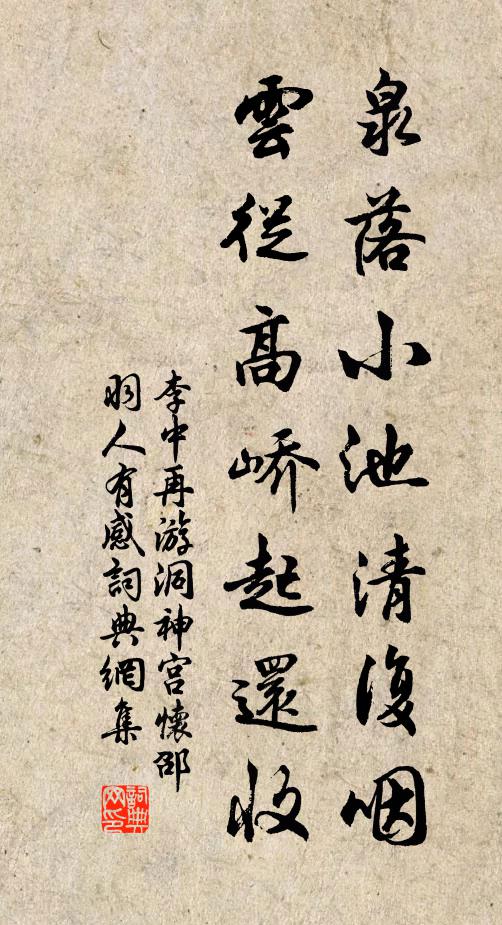 泉落小池清復咽
雲從高嶠起還收
李中再游洞神宮懷邵
羽人有感詞典網集
詞典網印